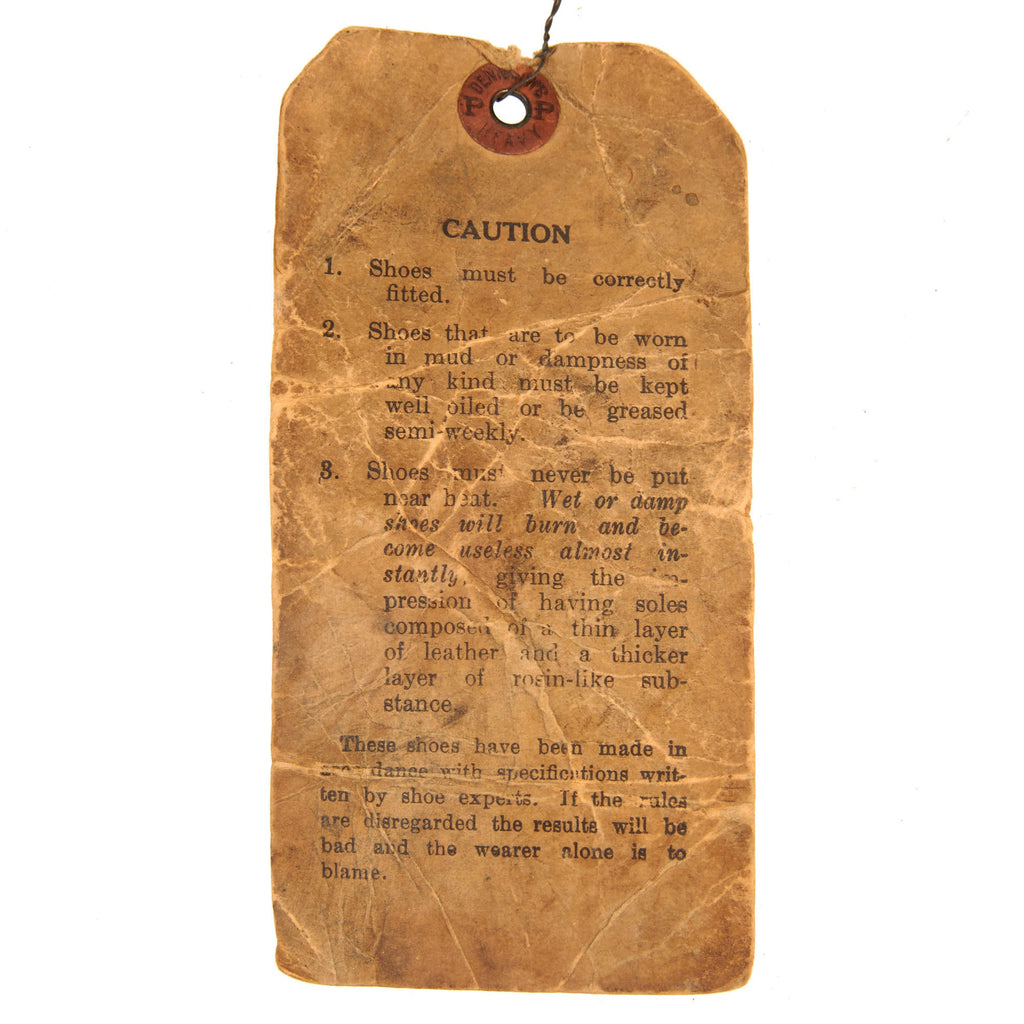 DENNISON'S
P P
HEAVY
CAUTION
1. Shoes must be correctly
fitted.
2. Shoes that are to be worn
in mud or dampness of
any kind must be kept
well oiled or be greased
semi-weekly.
3. Shoes must never be put
near heat. Wet or damp
shoes will burn and be-
come useless almost in-
stantly, giving the im-
pression of having soles
composed of a thin layer
of leather and a thicker
layer of rosin-like sub-
stance.
These shoes have been made in
accordance with specifications writ-
ten by shoe experts. If the rules
are disregarded the results will be
bad and the wearer alone is to
blame.